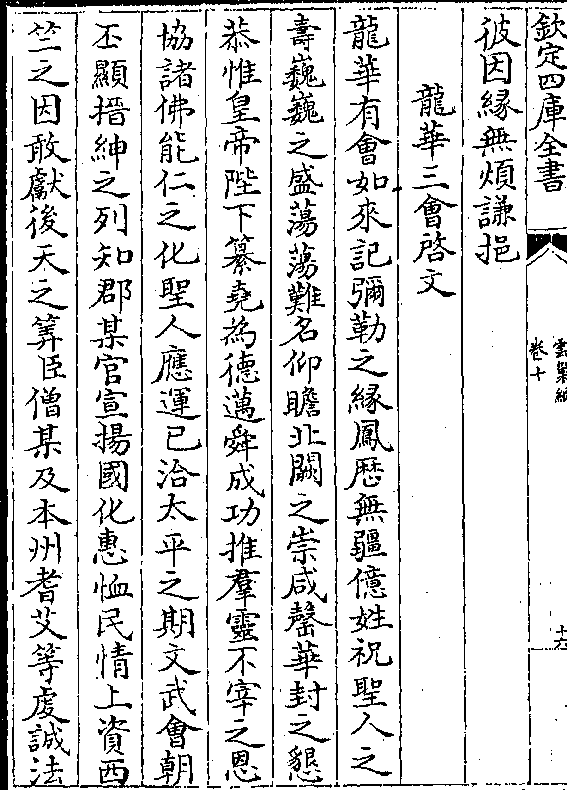 欽定四庫全書
卷十
十六
彼因緣無煩謙挹
龍華三會啓文
龍華有會如來記彌勒之緣鳳厯無疆億姓祝聖人之
壽巍巍之盛蕩蕩難名仰瞻北闕之崇咸罄華封之懇
恭惟皇帝陛下纂堯為德邁舜成功推羣靈不宰之恩
協諸佛能仁之化聖人應運已洽太平之期文武會朝
丕顯搢紳之列知郡某官宣揚國化惠恤民情上資西
竺之因敢獻後天之筭臣僧某及本州耆艾等䖍誠法